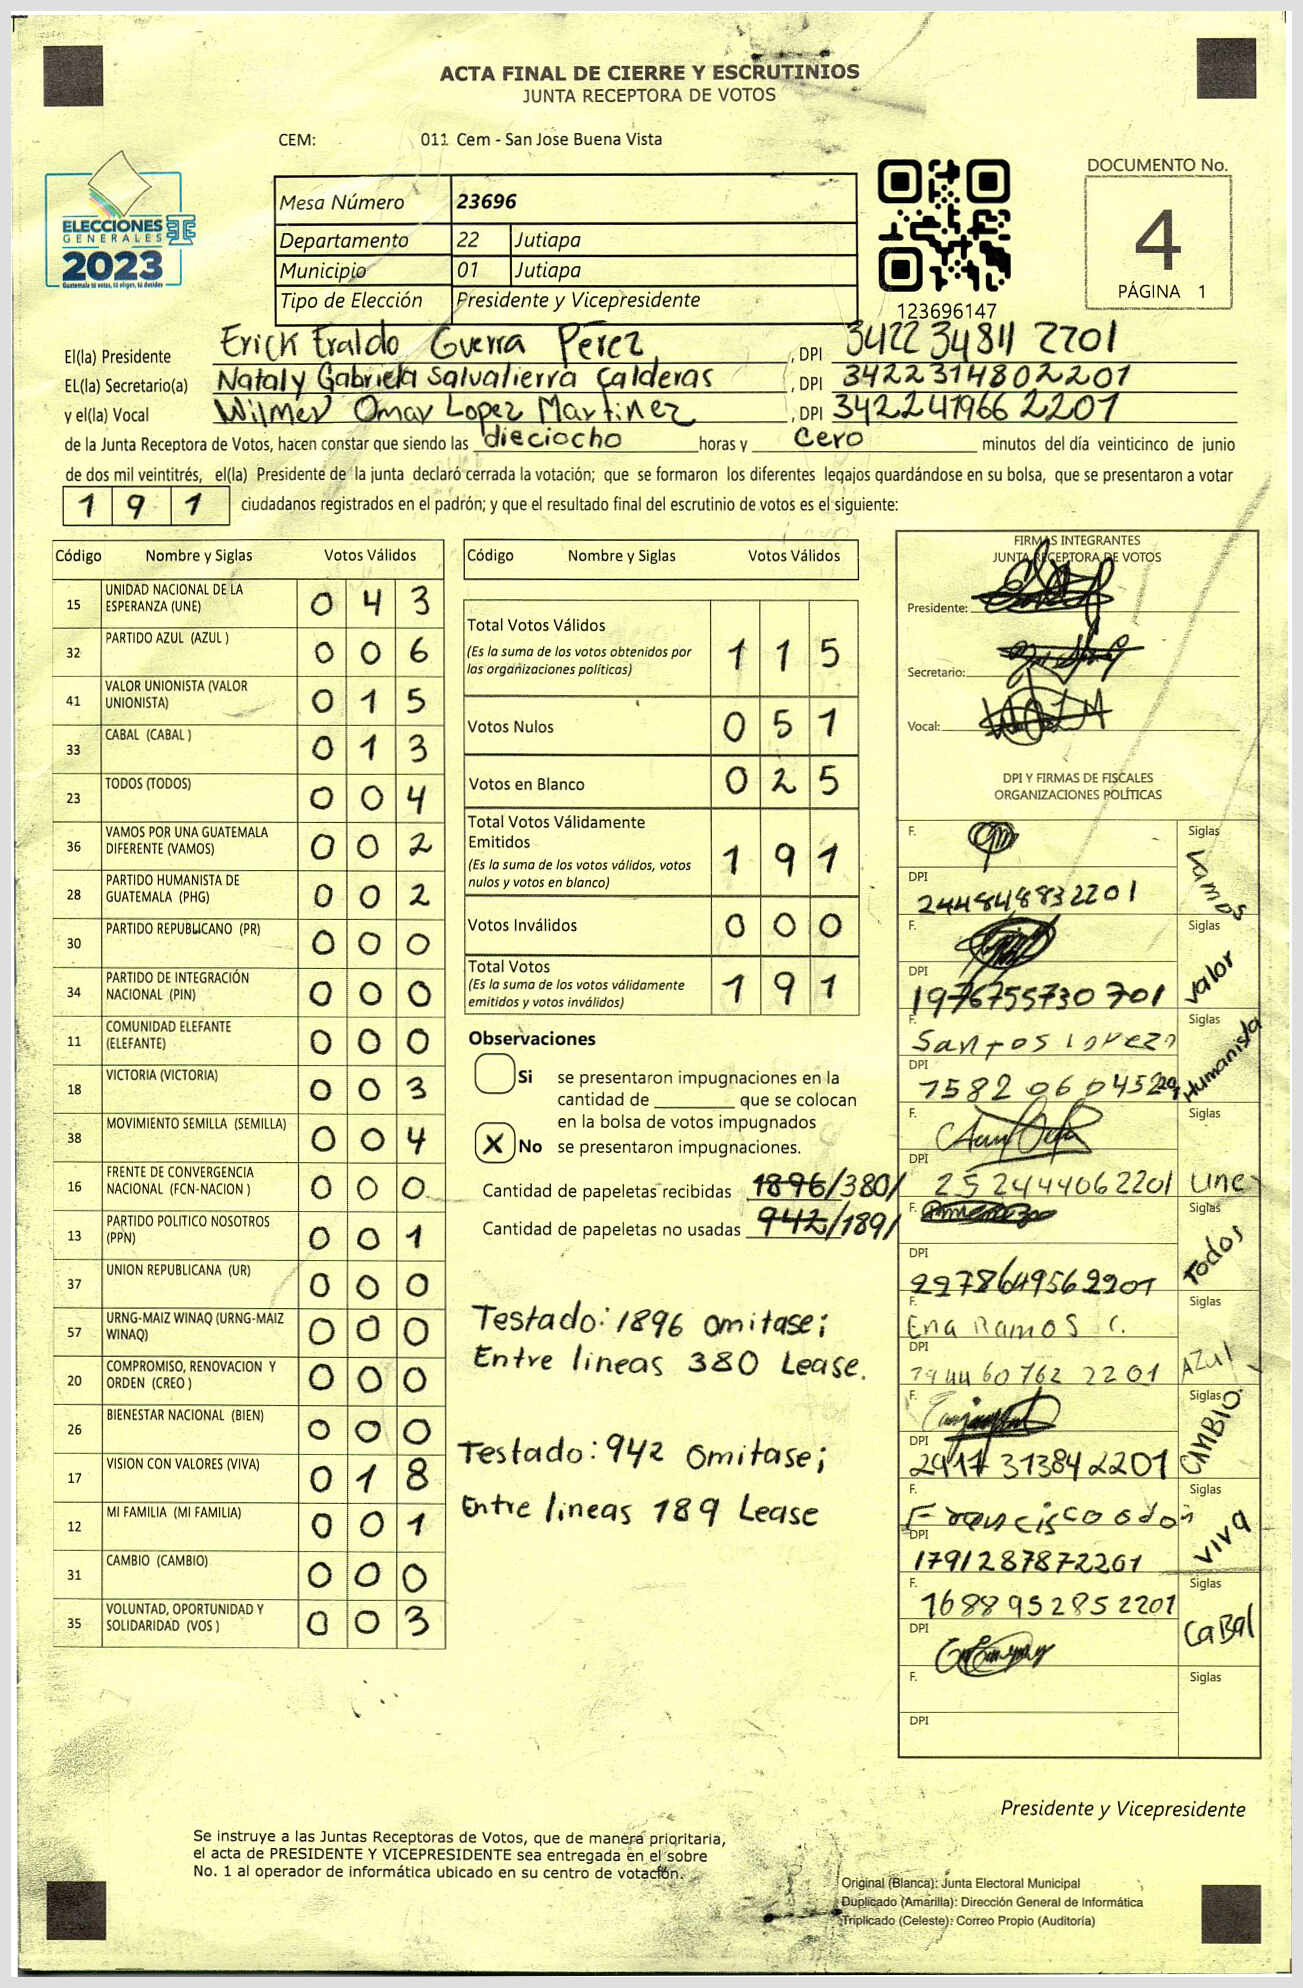 ACTA FINAL DE CIERRE Y ESCRUTINIOS
JUNTA RECEPTORA DE VOTOS
CEM: 011 Cem - San Jose Buena Vista
ELECCIONES
GENERALES
2023
Guatemala tú votas, tú eliges, tú decides
Mesa Número 23696
Departamento 22 Jutiapa
Municipio 01 Jutiapa
Tipo de Elección Presidente y Vicepresidente
123696147
DOCUMENTO No.
4
PÁGINA 1
El(la) Presidente Erick Eraldo Guerra Pérez, DPI 3422 34811 2201
EL(la) Secretario(a) Nataly Gabriela Salvatierra Calderas, DPI 3422314802201
y el(la) Vocal Wilmer Omar Lopez Martinez, DPI 342241966 2201
de la Junta Receptora de Votos, hacen constar que siendo las dieciocho horas y cero minutos del día veinticinco de junio
de dos mil veintitrés, el(la) Presidente de la junta declaró cerrada la votación; que se formaron los diferentes legajos guardándose en su bolsa, que se presentaron a votar
191 ciudadanos registrados en el padrón; y que el resultado final del escrutinio de votos es el siguiente:
Código Nombre y Siglas Votos Válidos
15 UNIDAD NACIONAL DE LA ESPERANZA (UNE) 0 4 3
32 PARTIDO AZUL (AZUL ) 0 0 6
41 VALOR UNIONISTA (VALOR UNIONISTA) 0 1 5
33 CABAL (CABAL ) 0 1 3
23 TODOS (TODOS) 0 0 4
36 VAMOS POR UNA GUATEMALA DIFERENTE (VAMOS) 0 0 2
28 PARTIDO HUMANISTA DE GUATEMALA (PHG) 0 0 2
30 PARTIDO REPUBLICANO (PR) 0 0 0
34 PARTIDO DE INTEGRACIÓN NACIONAL (PIN) 0 0 0
11 COMUNIDAD ELEFANTE (ELEFANTE) 0 0 0
18 VICTORIA (VICTORIA) 0 0 3
38 MOVIMIENTO SEMILLA (SEMILLA) 0 0 4
16 FRENTE DE CONVERGENCIA NACIONAL (FCN-NACION ) 0 0 0
13 PARTIDO POLITICO NOSOTROS (PPN) 0 0 1
37 UNION REPUBLICANA (UR) 0 0 0
57 URNG-MAIZ WINAQ (URNG-MAIZ WINAQ) 0 0 0
20 COMPROMISO, RENOVACION Y ORDEN (CREO ) 0 0 0
26 BIENESTAR NACIONAL (BIEN) 0 0 0
17 VISION CON VALORES (VIVA) 0 1 8
12 MI FAMILIA (MI FAMILIA) 0 0 1
31 CAMBIO (CAMBIO) 0 0 0
35 VOLUNTAD, OPORTUNIDAD Y SOLIDARIDAD (VOS ) 0 0 3
Código Nombre y Siglas Votos Válidos
Total Votos Válidos 1 1 5
(Es la suma de los votos obtenidos por
las organizaciones políticas)
Votos Nulos 0 5 1
Votos en Blanco 0 2 5
Total Votos Válidamente
Emitidos 1 9 1
(Es la suma de los votos válidos, votos
nulos y votos en blanco)
Votos Inválidos 0 0 0
Total Votos 1 9 1
(Es la suma de los votos válidamente
emitidos y votos inválidos)
Observaciones
Si se presentaron impugnaciones en la
cantidad de ________ que se colocan
en la bolsa de votos impugnados
X No se presentaron impugnaciones.
Cantidad de papeletas recibidas 1896/380/
Cantidad de papeletas no usadas 942/189/
Testado: 1896 omitase;
Entre lineas 380 Lease.
Testado: 942 omitase;
Entre lineas 189 Lease
FIRMAS INTEGRANTES
JUNTA RECEPTORA DE VOTOS
Presidente:
Secretario:
Vocal:
DPI Y FIRMAS DE FISCALES
ORGANIZACIONES POLÍTICAS
F. Siglas
DPI 244848832201 Vamos
F. Siglas
DPI 1976755730701 Valor
F. Santos Siglas
DPI Humanista
F. Siglas
DPI 252444062201 Une
F. Siglas
DPI 2278649562201 Todos
F. Ena Ramos C. Siglas
DPI 60762 2201 AZul
F. Siglas
DPI 2917313842201 CAMBIO
F. Francisco Siglas
DPI 1791287872201 VIVA
F. 1688952852201 Siglas
DPI CaBal
F. Siglas
DPI
Presidente y Vicepresidente
Se instruye a las Juntas Receptoras de Votos, que de manera prioritaria,
el acta de PRESIDENTE Y VICEPRESIDENTE sea entregada en el sobre
No. 1 al operador de informática ubicado en su centro de votación.
Original (Blanca): Junta Electoral Municipal
Duplicado (Amarilla): Dirección General de Informática
Triplicado (Celeste): Correo Propio (Auditoría)